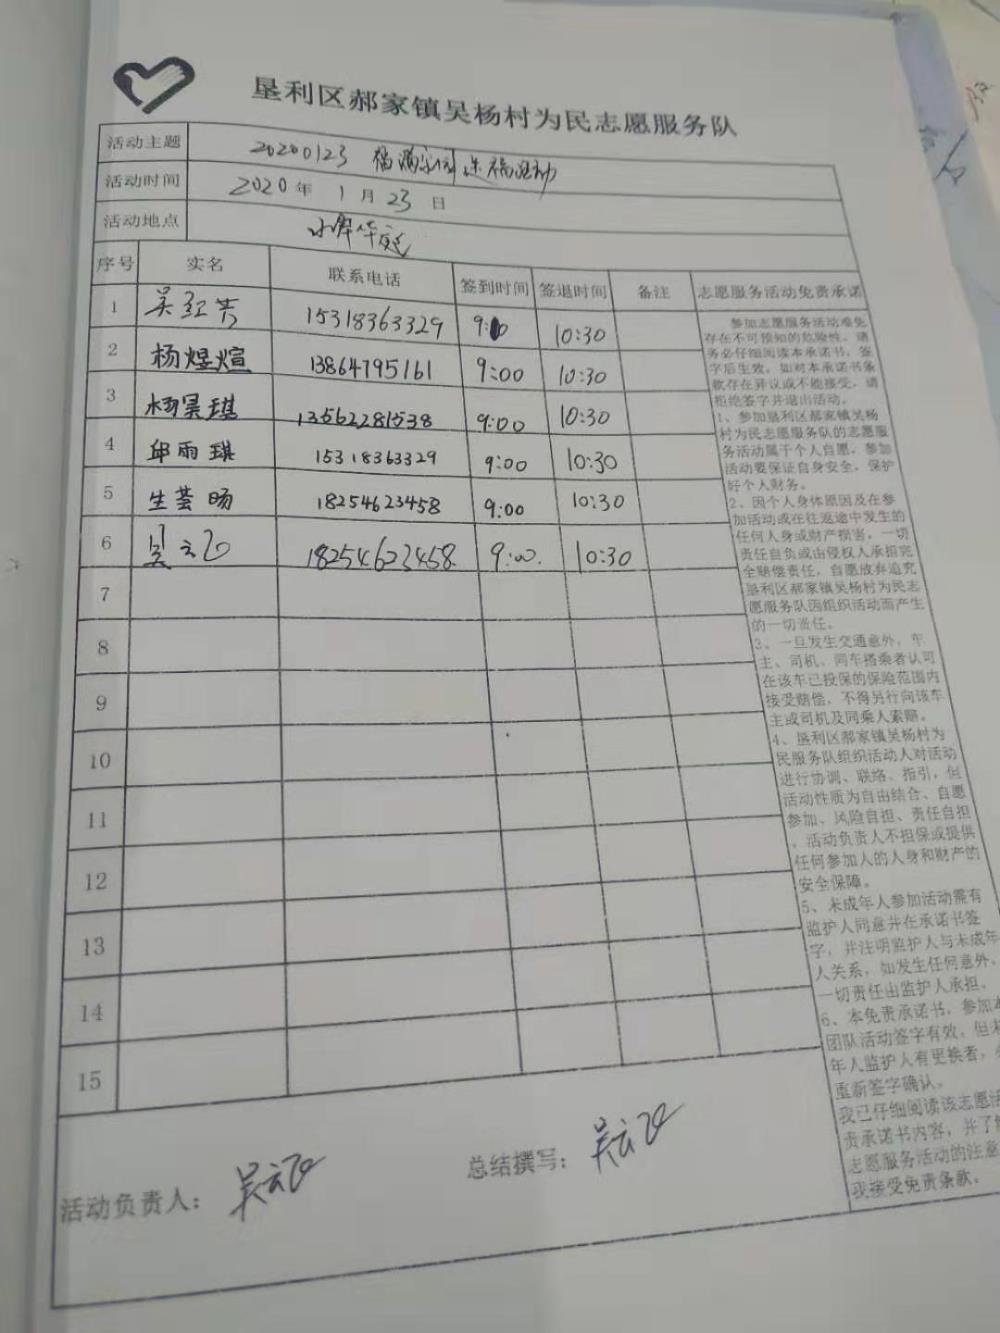 垦利区郝家镇吴杨村为民志愿服务队
活动主题 20200123 福满
活动时间 2020年1月23日
活动地点 华庭
序号 实名 联系电话 签到时间 签退时间 备注 志愿服务活动免责承诺
1 吴红芳 15318363329 9:00 10:30
2 杨煜煊 13864795161 9:00 10:30
3 杨昊琪 13562281538 9:00 10:30
4 邱雨琪 15318363329 9:00 10:30
5 生荟旸 18254623458 9:00 10:30
6 吴云飞 18254623458 9:00 10:30
7
8
9
10
11
12
13
14
15
参加志愿服务活动难免
存在不可预知的危险性，请
务必仔细阅读本承诺书，签
字后生效，如对本承诺书条
款存在异议或不能接受，请
拒绝签字并退出活动。
1、参加垦利区郝家镇吴杨
村为民志愿服务队的志愿服
务活动属于个人自愿，参加
活动要保证自身安全，保护
好个人财务。
2、因个人身体原因及在参
加活动或在往返途中发生的
任何人身或财产损害，一切
责任自负或由侵权人承担完
全赔偿责任，自愿放弃追究
垦利区郝家镇吴杨村为民志
愿服务队因组织活动而产生
的一切责任。
3、一旦发生交通意外，车
主、司机、同车搭乘者认可
在该车已投保的保险范围内
接受赔偿，不得另行向该车
主或司机及同乘人索赔。
4、垦利区郝家镇吴杨村为
民服务队组织活动人对活动
进行协调、联络、指引，但
活动性质为自由结合、自愿
参加、风险自担、责任自担
，活动负责人不担保或提供
任何参加人的人身和财产的
安全保障。
5、未成年人参加活动需有
监护人同意并在承诺书签
字，并注明监护人与未成年
人关系，如发生任何意外，
一切责任由监护人承担。
6、本免责承诺书，参加本
团队活动签字有效，但未
年人监护人有更换者，
重新签字确认。
我已仔细阅读该志愿活
责承诺书内容，并了解
志愿服务活动的注意
我接受免责条款。
活动负责人：吴云飞 总结撰写：吴云飞